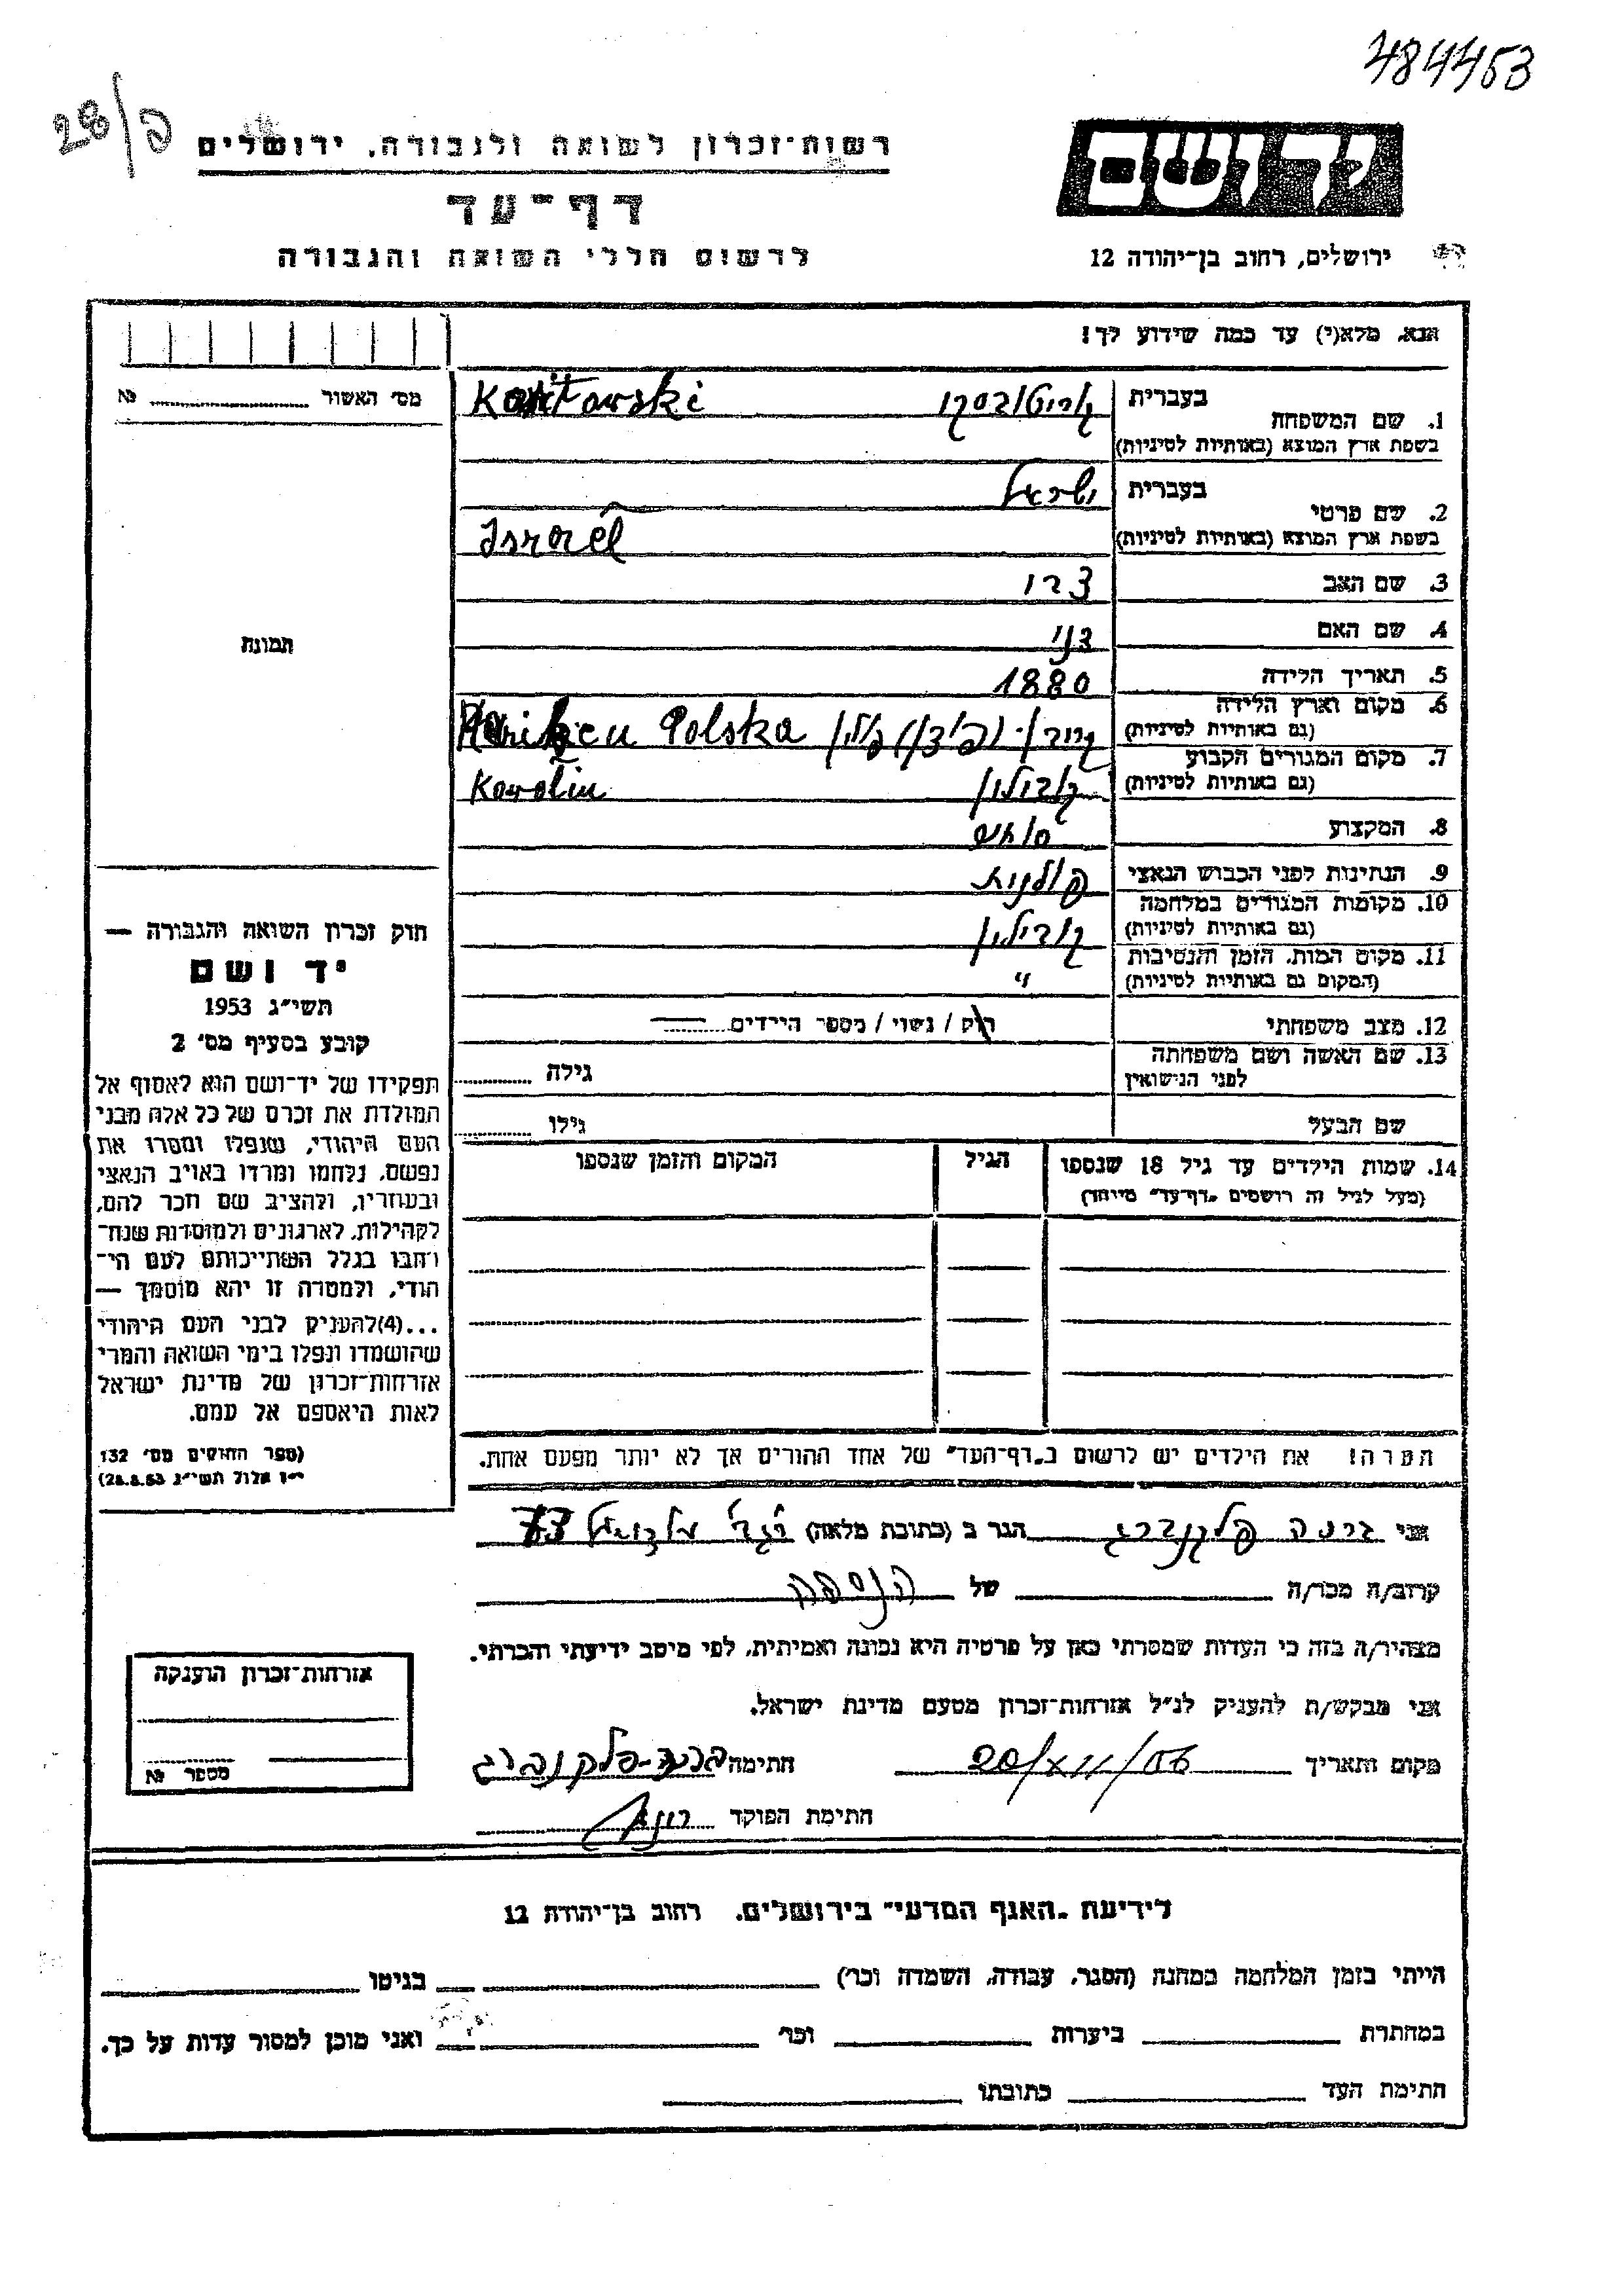 484453
28/פ
יד ושם
רשות-זכרון לשואה ולגבורה, ירושלים
דף-עד
לרשום חללי השואה והגבורה
ירושלים, רחוב בן-יהודה 12
אנא, מלא(י) עד כמה שידוע לך!
מס' האשור № 
1. שם המשפחה בעברית
בשפת ארץ המוצא (באותיות לטיניות)
2. שם פרטי בעברית ישראל
בשפת ארץ המוצא (באותיות לטיניות) Israel
3. שם האב
4. שם האם
5. תאריך הלידה 1880
6. מקום וארץ הלידה
(גם באותיות לטיניות) פולין Polska
7. מקום המגורים הקבוע
(גם באותיות לטיניות) קובילין Kowalin
8. המקצוע סוחר
9. הנתינות לפני הכבוש הנאצי פולנית
10. מקומות המגורים במלחמה
(גם באותיות לטיניות) קובילין
11. מקום המות, הזמן והנסיבות
(המקום גם באותיות לטיניות) "
12. מצב משפחתי רוק / נשוי / מספר הילדים
13. שם האשה ושם משפחתה
לפני הנישואין גילה
שם הבעל גילו
14. שמות הילדים עד גיל 18 שנספו הגיל המקום והזמן שנספו
(מעל לגיל זה רושמים "דף-עד" מיוחד)
הערה! את הילדים יש לרשום ב"דף-העד" של אחד ההורים אך לא יותר מפעם אחת.
תמונה
חוק זכרון השואה והגבורה —
יד ושם
תשי"ג 1953
קובע בסעיף מס' 2
תפקידו של יד-ושם הוא לאסוף אל
המולדת את זכרם של כל אלה מבני
העם היהודי, שנפלו ומסרו את
נפשם, נלחמו ומרדו באויב הנאצי
ובעוזריו, ולהציב שם וזכר להם,
לקהילות, לארגונים ולמוסדות שנח-
רבו בגלל השתייכותם לעם הי-
הודי, ולמטרה זו יהא מוסמך —
...(4)להעניק לבני העם היהודי
שהושמדו ונפלו בימי השואה והמרי
אזרחות-זכרון של מדינת ישראל
לאות היאספם אל עמם.
(ספר החוקים מס' 132
י"ז אלול תשי"ג 28.8.53)
אני פלקנברג הגר ב (כתובת מלאה) 73
קרוב/ה מכר/ה של הנספה
מצהיר/ה בזה כי העדות שמסרתי כאן על פרטיה היא נכונה ואמיתית, לפי מיטב ידיעתי והכרתי.
אני מבקש/ת להעניק לנ"ל אזרחות-זכרון מטעם מדינת ישראל.
מקום ותאריך 20/XII/56 חתימה פלקנברג
חתימת הפוקד
אזרחות-זכרון הוענקה
מספר №
לידיעת "האגף המדעי" בירושלים, רחוב בן-יהודה 12
הייתי בזמן המלחמה במחנה (הסגר, עבודה, השמדה וכו') בגיטו
במחתרת ביערות וכו' ואני מוכן למסור עדות על כך.
חתימת העד כתובתו